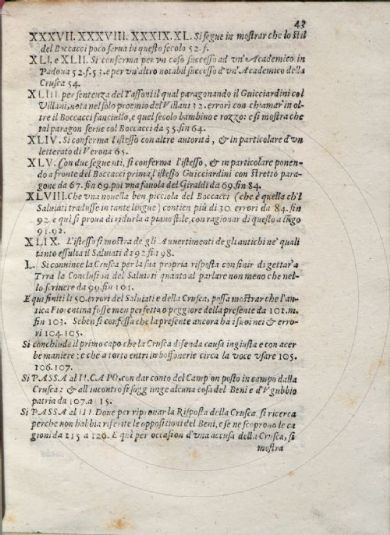 43
XXXVII. XXXVIII. XXXIX. XL. Si segue in mostrar che lo stil
del Boccacci poco serua in questo secolo 52. f.
XLI. e XLII. Si conferma per un caso successo ad un'Academico in
Padoua 52. f. 53. e per un'altro notabil successo d'un'Academico della
Crusca 54.
XLIII. per sentenza del Tassoni il qual paragonando il Guicciardini col
Villani, nota nel solo proemio del Villani 12. errori con chiamar'in ol-
tre il Boccacci fanciullo, e quel secolo bambino e rozzo: e si mostra che
tal paragon serue col Boccacci da 55. fin 64.
XLIV. Si conferma l'istesso con altre autorità, & in particolare d'un
letterato di Verona 65.
XLV. Con due seguenti, si conferma l'istesso, & in particolare ponen-
do a fronte del Boccacci prima l'istesso Guicciardini con stretto para-
gone da 67. fin 69. poi una fauola del Giraldi da 69. fin 84.
XLVIII. Che una nouella ben piccola del Boccacci (che è quella ch'l
Saluiati tradusse in tante lingue) contien più di 30. errori da 84. fin
92. e qui si proua di ridurla a piano stile, con ragionar di questo a lūgo
91. 92.
XLIX. L'istesso si mostra de gli Auuertimenti de gli antichi ne' quali
tanto essulta il Saluiati da 92. fin 98.
L. Si conuince la Crusca per la sua propria risposta con finir di gettar'a
Trra la Conclusion del Saluiati quanto al parlare non meno che nel-
lo scriuere da 99. fin 101.
E qui finiti li 50. errori del Saluiati e della Crusca, passa mostrar che l'an-
tica Fiorentina fosse men perfetta o peggiore della presente da 101. in
fin 103. Seben si confessa che la presente ancora ha i suoi nei & erro-
ri 104. 105.
Si conchiude il primo capo che la Crusca difenda causa ingiusta e con acer
be maniere: e che a torto entri in boffonerie circa la voce vsare 105.
106. 107.
Si PASSA al II. CAPO, con dar conto del Camp on posto in campo dalla
Crusca: & all'incontro si soggiunge alcuna cosa del Beni e d'Vgubbio
patria da 107. a 115.
Si PASSA al III. Doue per riprouar la Risposta della Crusca, si ricerca
perche non habbia riferite le oppositioni del Beni, e se ne scoprono le ca
gioni da 115 a 120. E quì per occasion d'vna accusa della Crusca, si
mostra